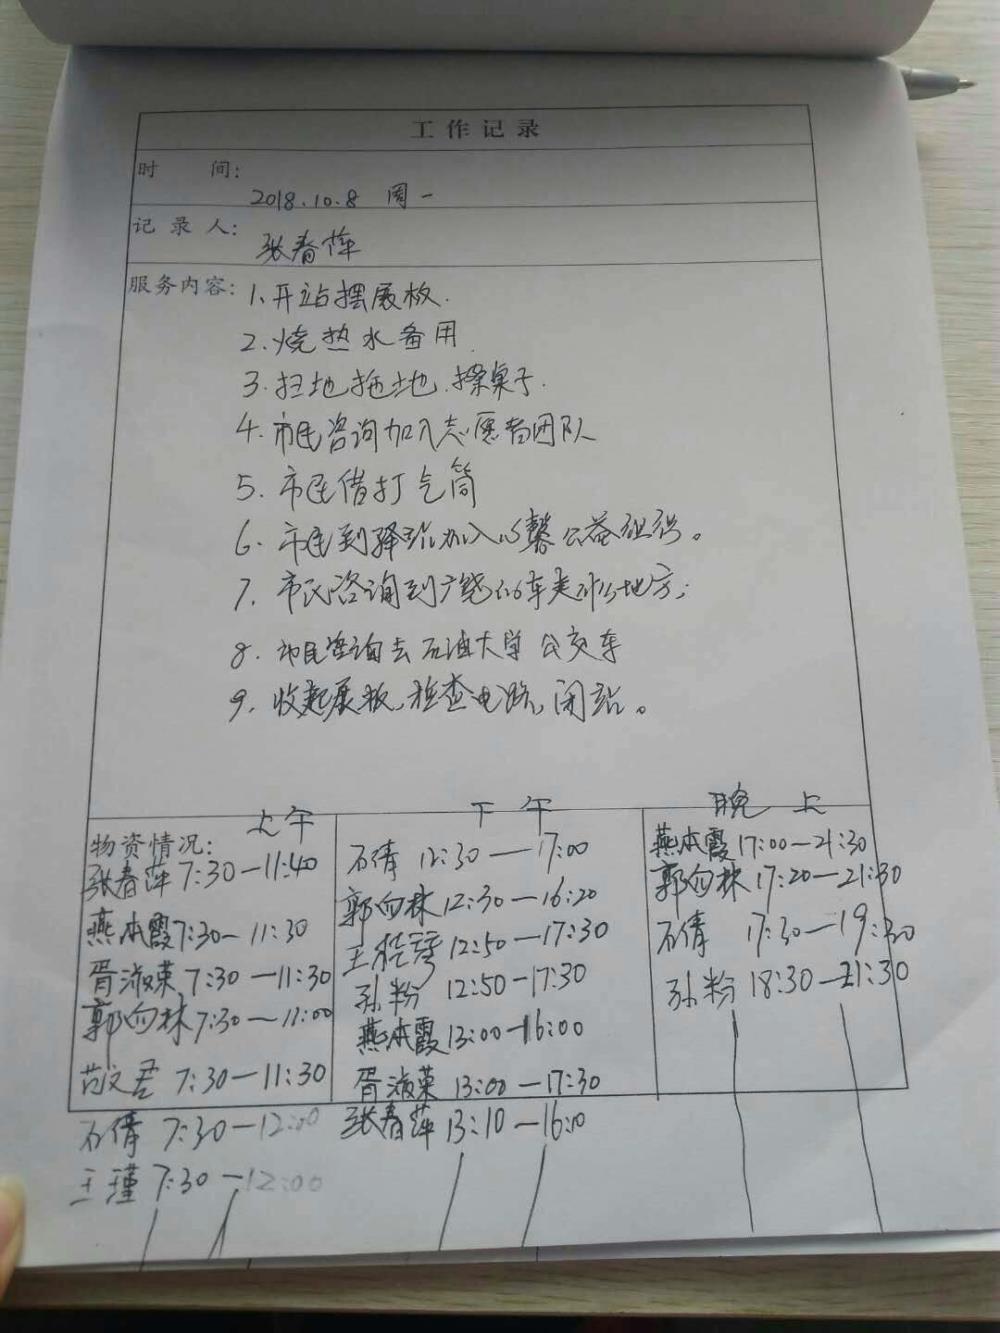 工作记录
时 间:
2018.10.8 周一
记录人: 张春萍
服务内容: 1.开站摆展板.
2.烧热水备用.
3.扫地拖地.擦桌子.
4.市民咨询加入志愿者团队
5.市民借打气筒
6.市民到驿站加入心馨公益组织。
7.市民咨询到广饶
8.市民咨询去石油大学公交车
9.收起展板,检查电路,闭站。
上午
物资情况:
张春萍 7:30—11:40
燕本霞 7:30—11:30
胥淑荣 7:30—11:30
郭向林 7:30—11:00
范文君 7:30—11:30
石倩 7:30—12:00
王瑾 7:30—12:00
下午
石倩 12:30—17:00
郭向林 12:30—16:20
王 12:50—17:30
孙粉 12:50—17:30
燕本霞 13:00—16:00
胥淑荣 13:00—17:30
张春萍 13:10—16:10
晚上
燕本霞 17:00—21:30
郭向林 17:20—21:30
石倩 17:30—19:30
孙粉 18:30—21:30